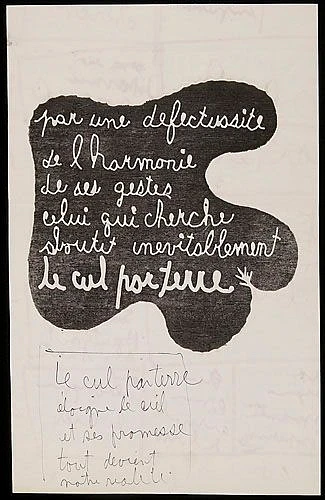 par une defectuosite
de l harmonie
de ses gestes
celui qui cherche
aboutit inevitablement
le cul par terre
Le cul par terre
éloigne le ciel
et ses promesse
tout devient
notre réalité